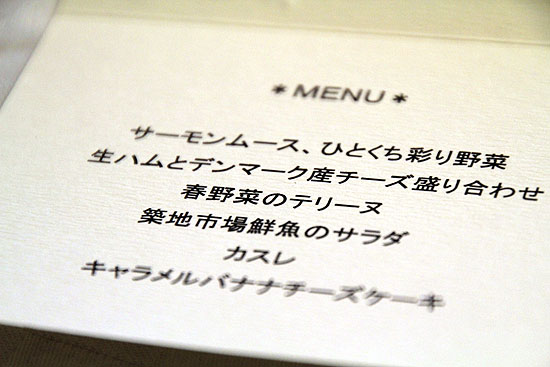 ＊MENU＊
サーモンムース、ひとくち彩り野菜
生ハムとデンマーク産チーズ盛り合わせ
春野菜のテリーヌ
築地市場鮮魚のサラダ
カスレ
キャラメルバナナチーズケーキ